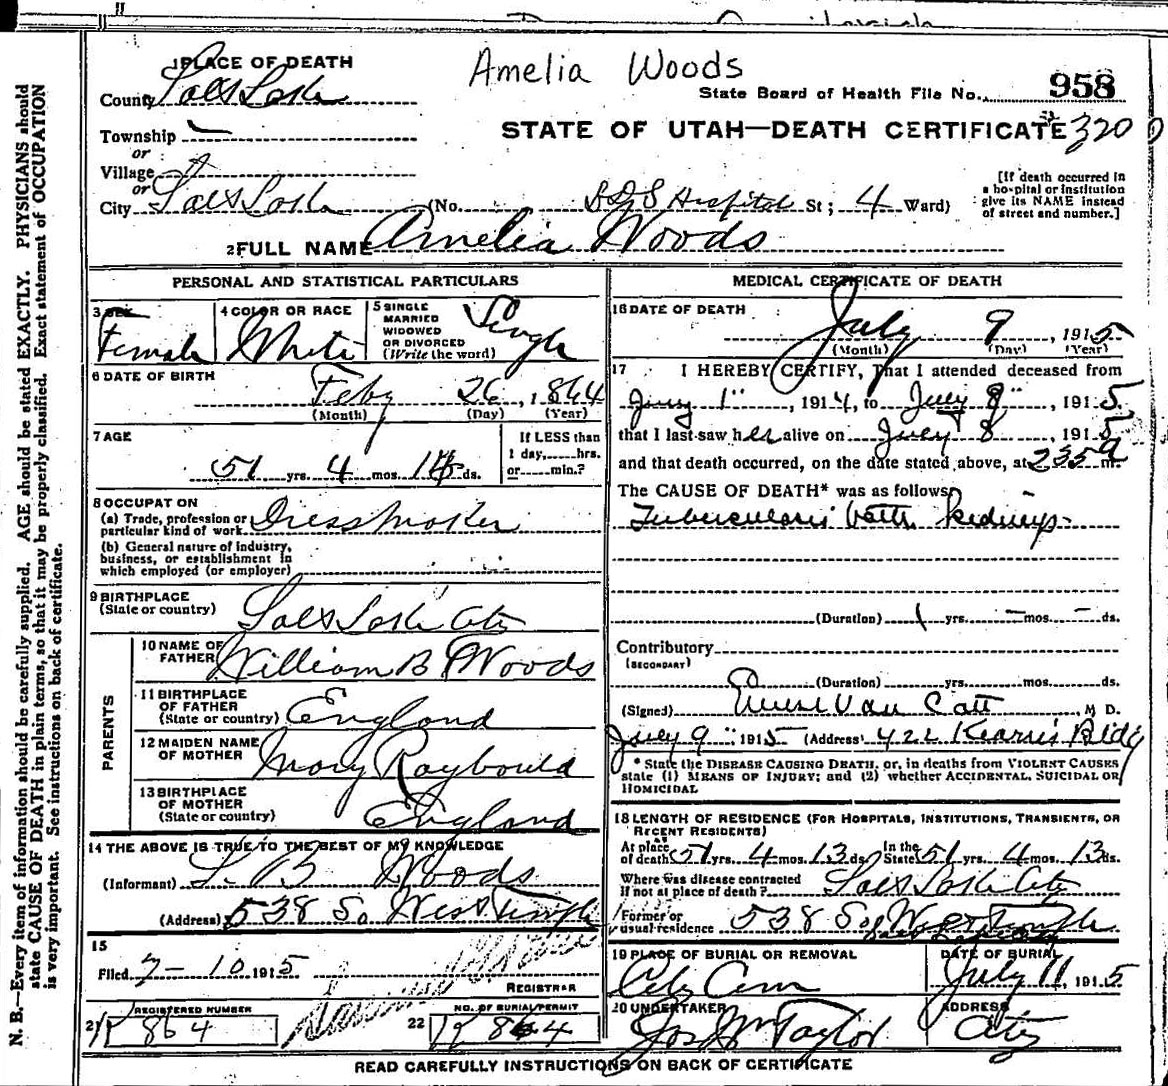 Amelia Woods
1 PLACE OF DEATH
County Salt Lake
State Board of Health File No. 958
Township
or
Village
or
City Salt Lake
STATE OF UTAH—DEATH CERTIFICATE 320
(No. LDS Hospital St; 4 Ward)
[If death occurred in a hospital or institution give its NAME instead of street and number.]
2 FULL NAME Amelia Woods
PERSONAL AND STATISTICAL PARTICULARS
3 SEX Female
4 COLOR OR RACE White
5 SINGLE MARRIED WIDOWED OR DIVORCED (Write the word) Single
6 DATE OF BIRTH Feby 26, 1864
(Month) (Day) (Year)
7 AGE
51 yrs. 4 mos. ds.
If LESS than 1 day, hrs. or min.?
8 OCCUPATON
(a) Trade, profession or particular kind of work Dressmaker
(b) General nature of industry, business, or establishment in which employed (or employer)
9 BIRTHPLACE
(State or country) Salt Lake City
PARENTS
10 NAME OF FATHER William B Woods
11 BIRTHPLACE OF FATHER (State or country) England
12 MAIDEN NAME OF MOTHER Mary Raybould
13 BIRTHPLACE OF MOTHER (State or country) England
14 THE ABOVE IS TRUE TO THE BEST OF MY KNOWLEDGE
(Informant) B Woods
(Address) 538 So West Temple
15
Filed 7 - 10 1915
REGISTRAR
21 REGISTERED NUMBER 864
22 NO. OF BURIAL PERMIT 864
MEDICAL CERTIFICATE OF DEATH
16 DATE OF DEATH
July 9, 1915
(Month) (Day) (Year)
17 I HEREBY CERTIFY, That I attended deceased from
1", 1914, to July, 1915.
that I last saw her alive on July 8, 1915
and that death occurred, on the date stated above, at 235 a m.
The CAUSE OF DEATH* was as follows:
Tuberculosis both kidneys-
(Duration) 1 yrs. — mos. — ds.
Contributory
(SECONDARY)
(Duration) yrs. mos. ds.
(Signed) Van Cott, M D.
July 9", 1915 (Address) 422 Kearns Bldg
* State the DISEASE CAUSING DEATH, or, in deaths from VIOLENT CAUSES
state (1) MEANS OF INJURY; and (2) whether ACCIDENTAL, SUICIDAL OR
HOMICIDAL
18 LENGTH OF RESIDENCE (FOR HOSPITALS, INSTITUTIONS, TRANSIENTS, OR
RECENT RESIDENTS)
At place of death 51 yrs. 4 mos. 13 ds. In the State 51 yrs. 4 mos. 13 ds.
Where was disease contracted
if not at place of death? Salt Lake City
Former or
usual residence 538 So West Temple
19 PLACE OF BURIAL OR REMOVAL City Cem
DATE OF BURIAL July 11, 1915
20 UNDERTAKER Jos Wm Taylor
ADDRESS City
READ CAREFULLY INSTRUCTIONS ON BACK OF CERTIFICATE
N. B.—Every item of information should be carefully supplied. AGE should be stated EXACTLY. PHYSICIANS should
state CAUSE OF DEATH in plain terms, so that it may be properly classified. Exact statement of OCCUPATION
is very important. See instructions on back of certificate.